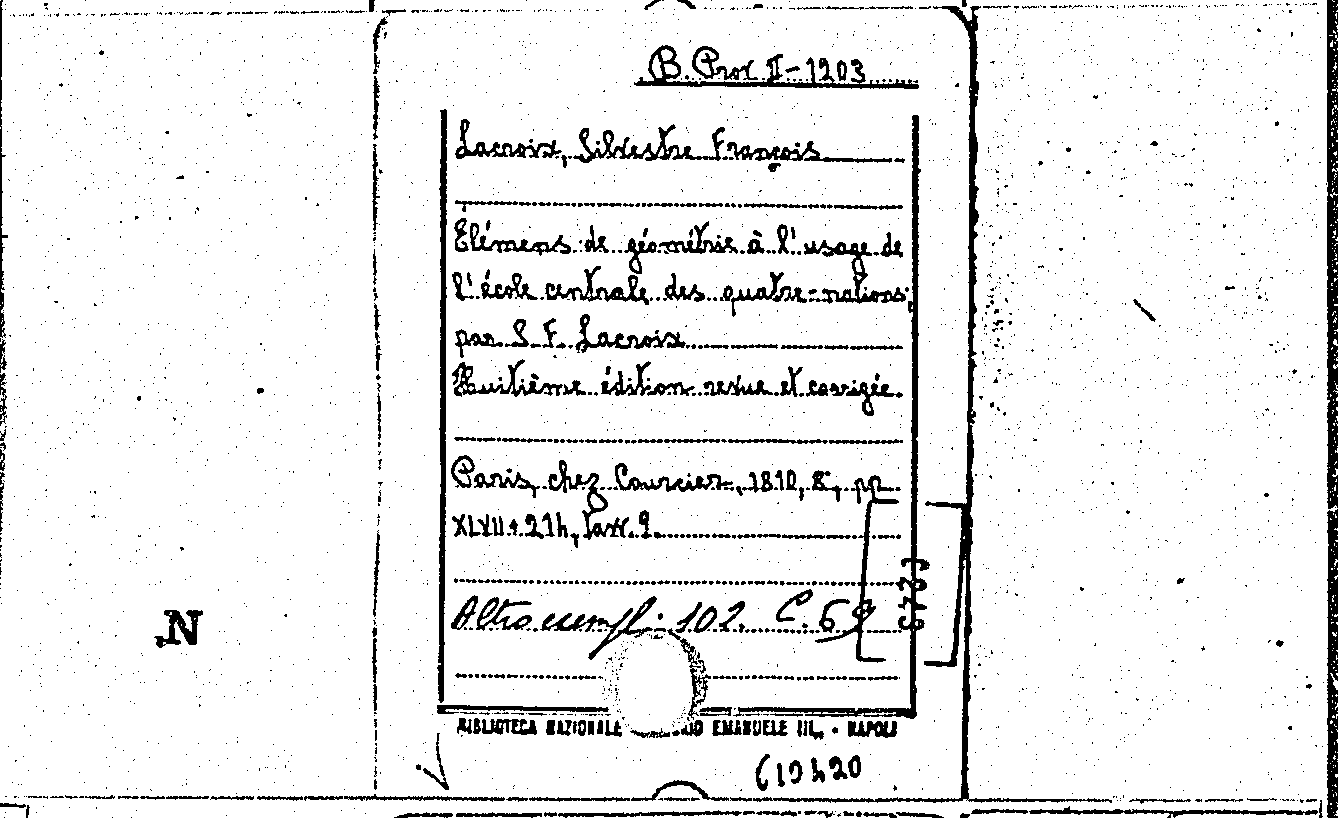 B. Prov. II-1203
Lacroix, Silvestre François
Élémens de géométrie à l'usage de
l'école centrale des quatre-nations;
par S. F. Lacroix
Huitième édition revue et corrigée.
Paris, chez Courcier, 1810, 8°, pp.
XLVII+214, tavv. 9.
Altro esempl. 102. C. 69
BIBLIOTECA NAZIONALE EMANUELE III, - NAPOLI
N